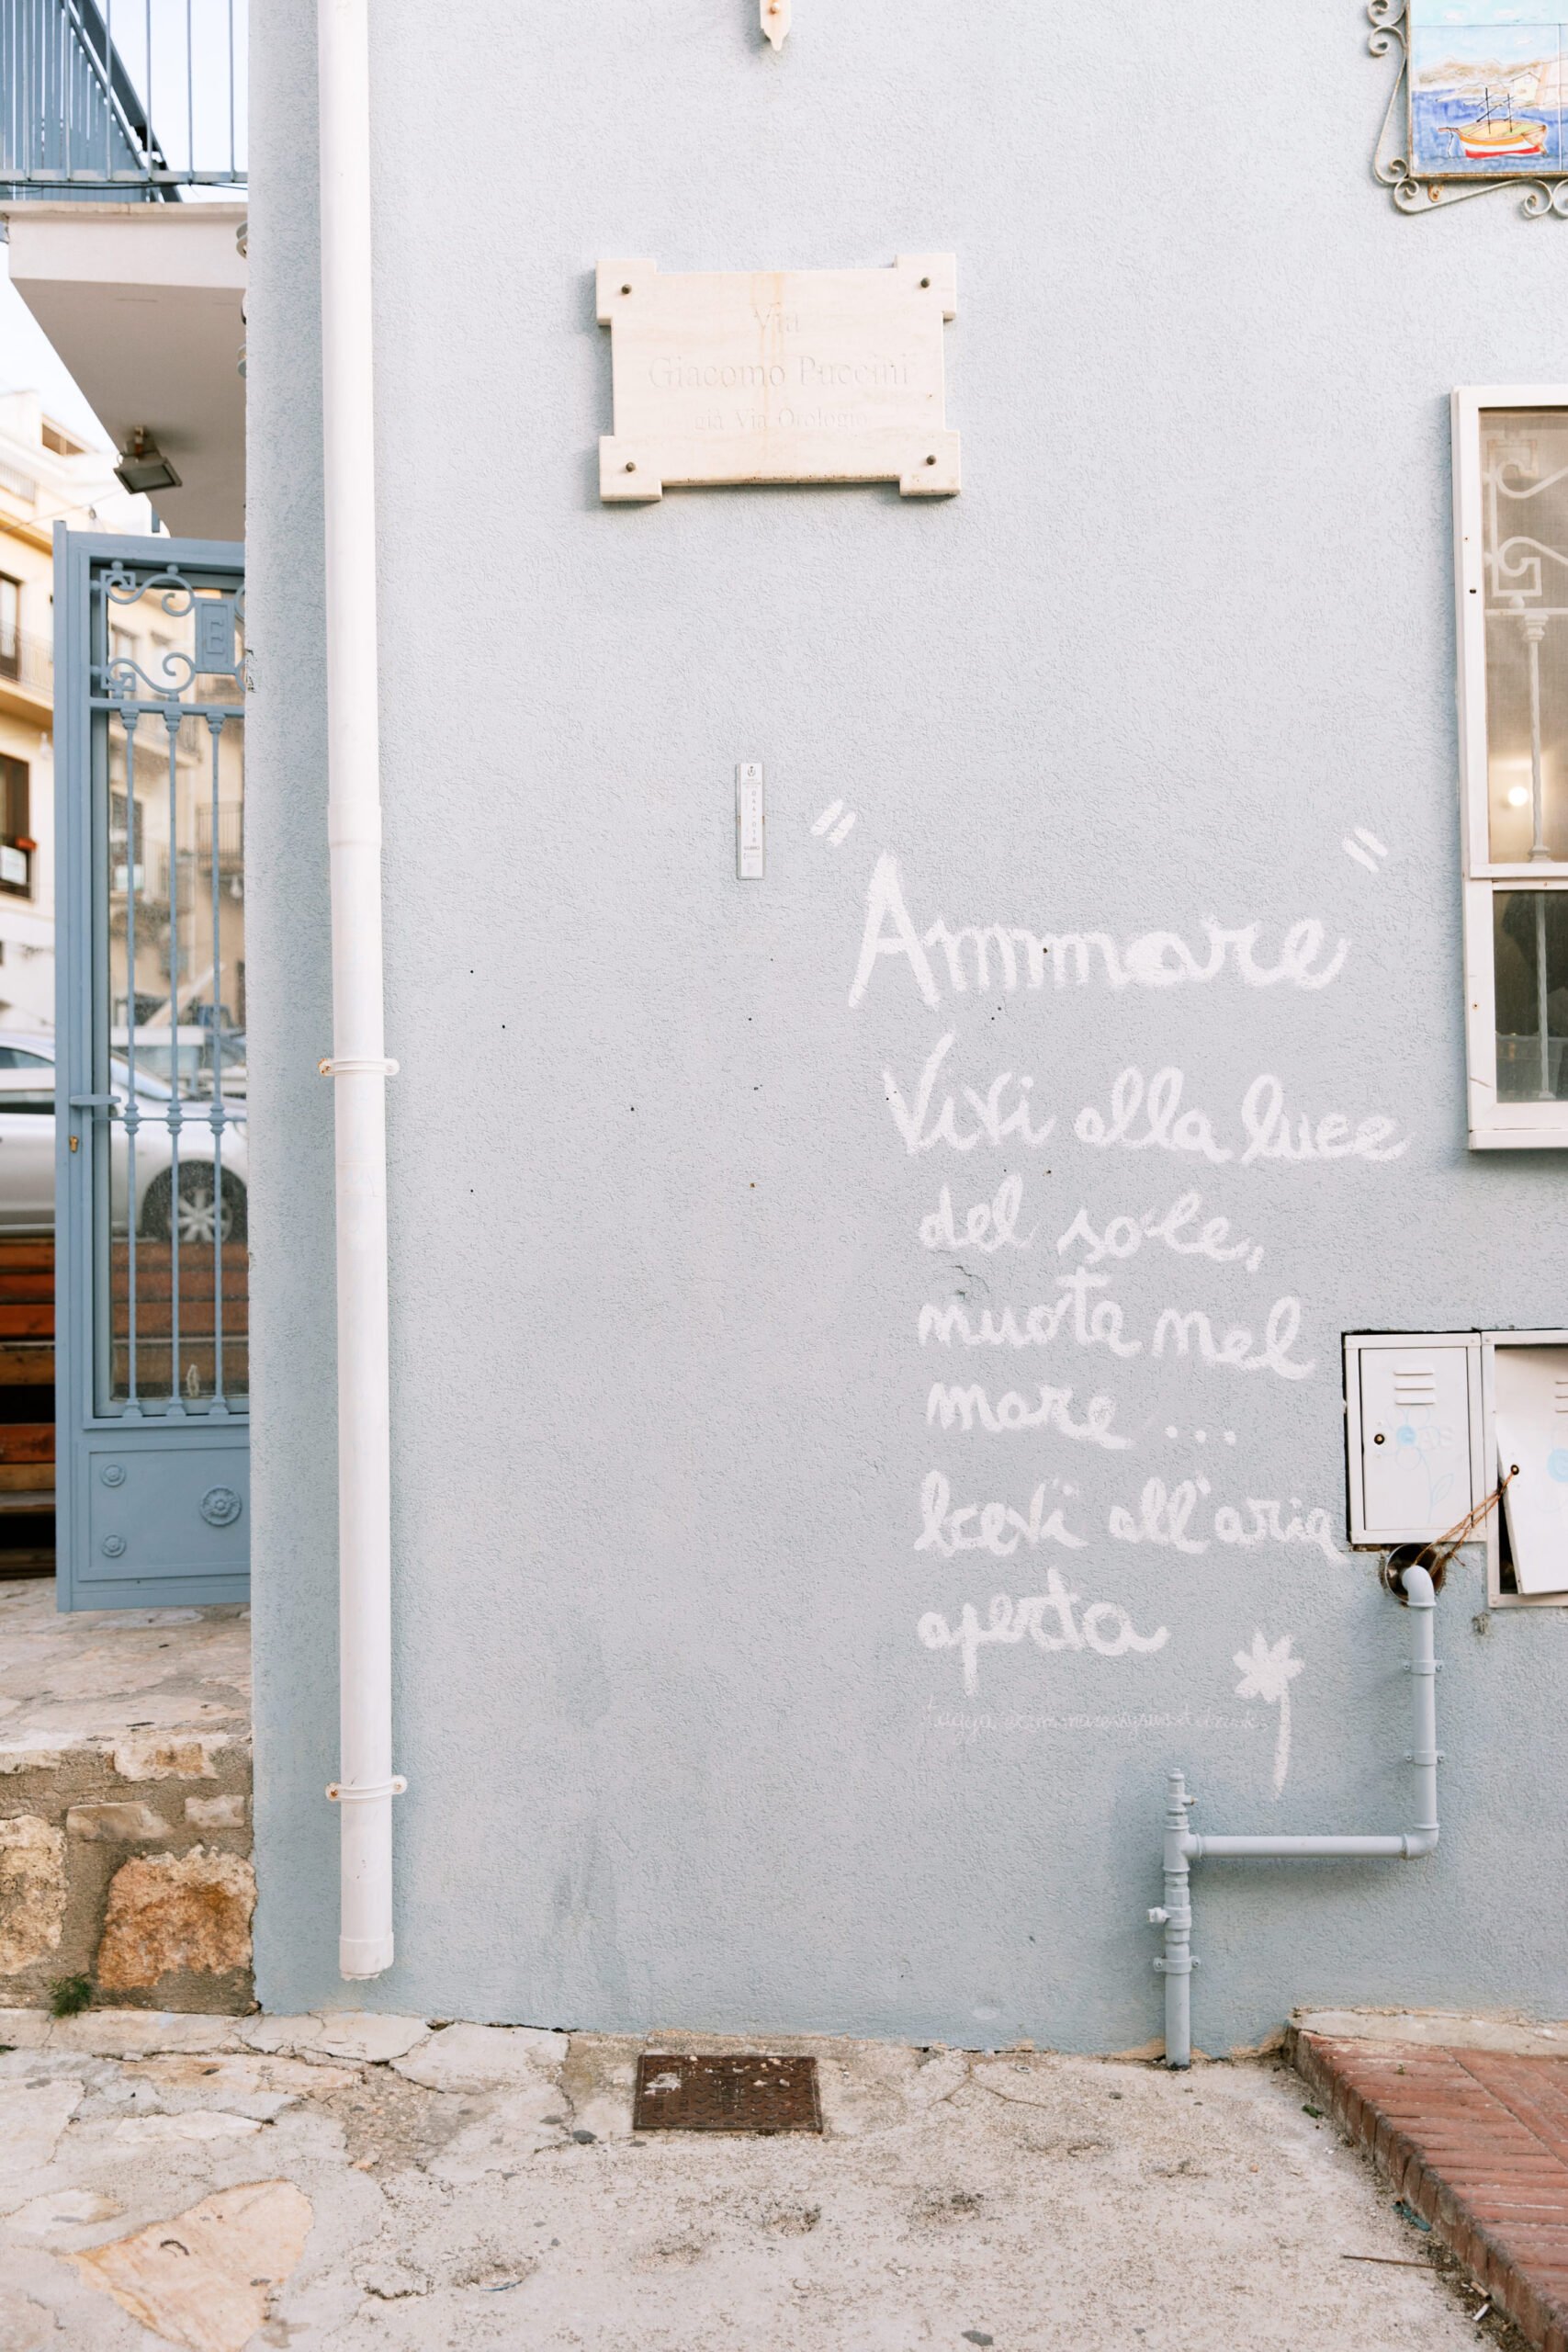 Via
Giacomo Puccini
già Via Orologio
"Ammare"
Vivi alla luce
del sole,
nuota nel
mare ...
bevi all'aria
aperta